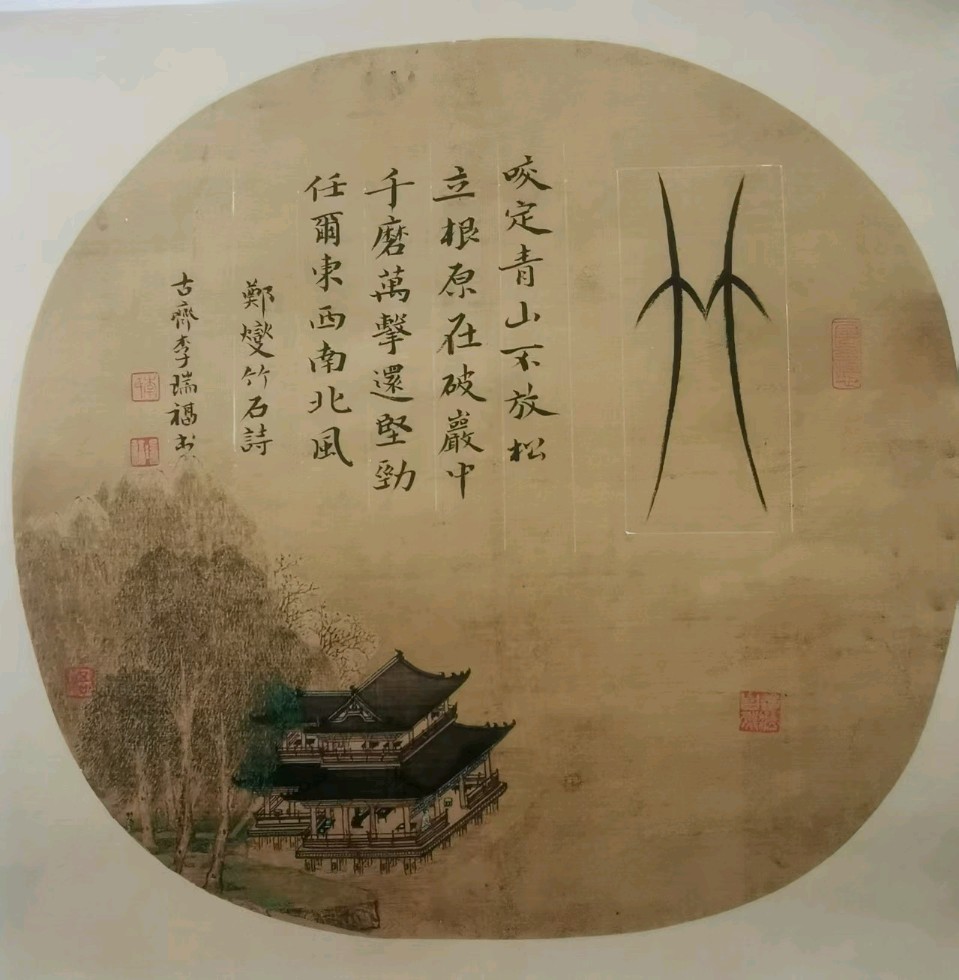 竹
咬定青山不放松
立根原在破巖中
千磨萬擊還堅勁
任爾東西南北風
鄭燮竹石詩
古齊李瑞福书